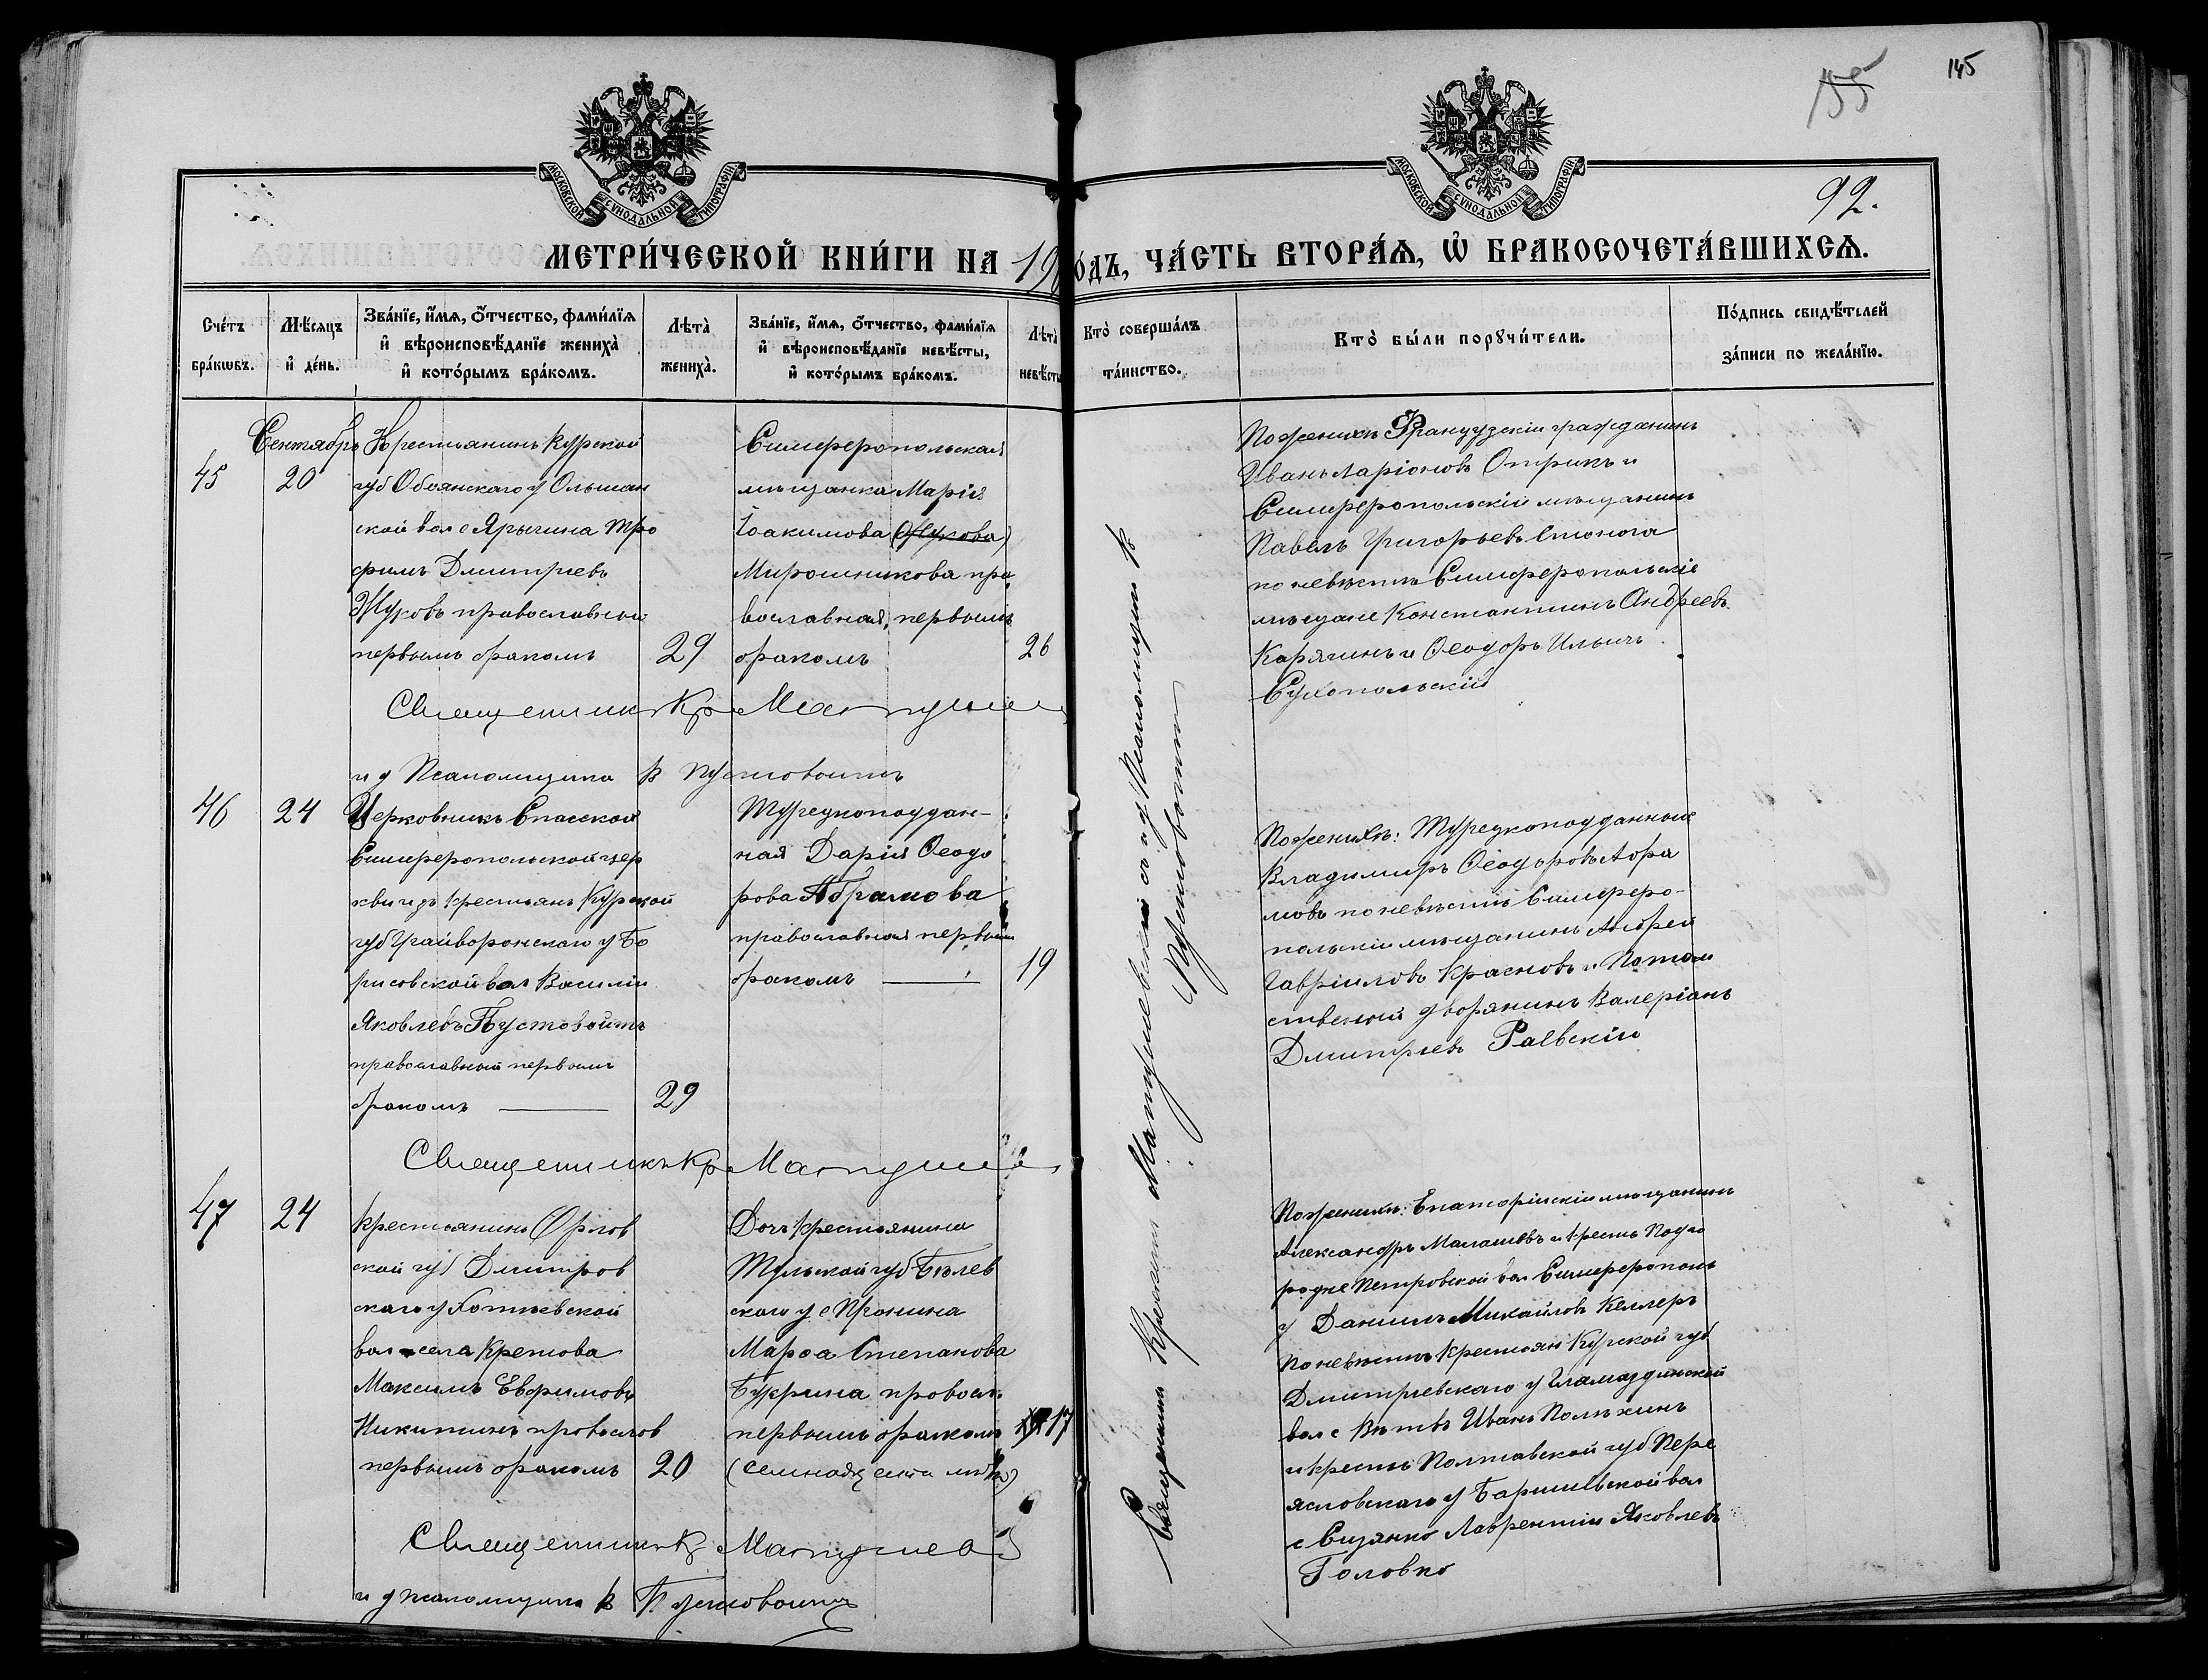 145
155
92.
МОСКОВСКОЙ СѴНОДАЛЬНОЙ ТИПОГРАФІИ
МОСКОВСКОЙ СѴНОДАЛЬНОЙ ТИПОГРАФІИ
МЕТРИ́ЧЕСКОЙ КНИ́ГИ НА 19
О́ДЪ, ЧА́СТЬ ВТОРА́Ѧ, Ѽ БРАКОСОЧЕТА́ВШИХСѦ.
Сче́тъ бра́кѡвъ.
Мѣ́сяцъ и҆ де́нь.
Зва́нїе, и҆́мѧ, ѻ҆́тчество, фами́лїѧ и҆ вѣроисповѣ́данїе жениха̀ и҆ кото́рымъ бра́комъ.
Лѣта̀ жениха̀.
Зва́нїе, и҆́мѧ, ѻ҆́тчество, фами́лїѧ и҆ вѣроисповѣ́данїе невѣ́сты, и҆ кото́рымъ бра́комъ.
Лѣта̀ невѣ́сты
Кто̀ соверша́лъ та́инство.
Кто̀ бы́ли порꙋчи́тели.
По́дпись свидѣ́телей за́писи по жела́нїю.
Сентябрь
45
20
Крестьянинъ Курской
губ Обоянскаго у Ольшан
ской вол с Ярыгина Тро
фимъ Дмитріевъ
Жуковъ православный
первымъ бракомъ
29
Симферопольская
мѣщанка Марія
Іоакимова (Жукова)
Мирошникова пра
вославная, первымъ
бракомъ
26
По женихѣ Французскій гражданинъ
Иванъ Ларіоновъ Отрикъ и
Симферопольскій мѣщанинъ
Павелъ Григорьевъ Стонога
по невѣстѣ Симферопольскіе
мѣщане Константинъ Андреевъ
Карягинъ и Ѳеодоръ Ильичъ
Сухопольскій
Священникъ Кр Матушев
и д Псаломщика В Пустовоитъ
46
24
Церковникъ Спасской
Симферопольской цер
кви изъ крестьянъ Курской
губ Грайворонскаго у Бо
рисовской вол Василій
Яковлевъ Пустовойтъ
православный первымъ
бракомъ
29
Турецкоподдан-
ная Дарія Ѳеодо
рова Абрамова
православная первымъ
бракомъ
19
По женихѣ: Турецкоподданный
Владимиръ Ѳеодоровъ Абра
мовъ по невѣстѣ Симферо-
польскій мѣщанинъ Андрей
Гавріиловъ Красновъ и Потом
ственный дворянинъ Валеріанъ
Дмитріевъ Раевскій
Священникъ Кр Матушев
47
24
Крестьянинъ Орлов
ской губ Дмитров
скаго у Хотьевской
вол села Кретова
Максимъ Евфимовъ
Никитинъ православ
первымъ бракомъ
20
Дочь крестьянина
Тульской губ Бѣлев
скаго у с Пронина
Марѳа Степанова
Букрина правосл.
первымъ бракомъ
17
(семнадцати лѣтъ)
По женихѣ: Евпаторійскій мѣщанинъ
Александръ Малашевъ и крест Подго
родне Петровской вол Симферополь
у Даніилъ Михайловъ Келлеръ
По невѣстѣ крестьян Курской губ
Дмитріевскаго у
вол с Иванъ Полѣхинъ
и крест Полтавской губ Пере
яславскаго у Барышевской вол
с Лаврентій Яковлевъ
Головко
Священникъ К Матушевъ
и д псаломщика В Пустовоитъ
Священникъ Крескентъ Матушевскій и и д Псаломщика В
Пустовоитъ